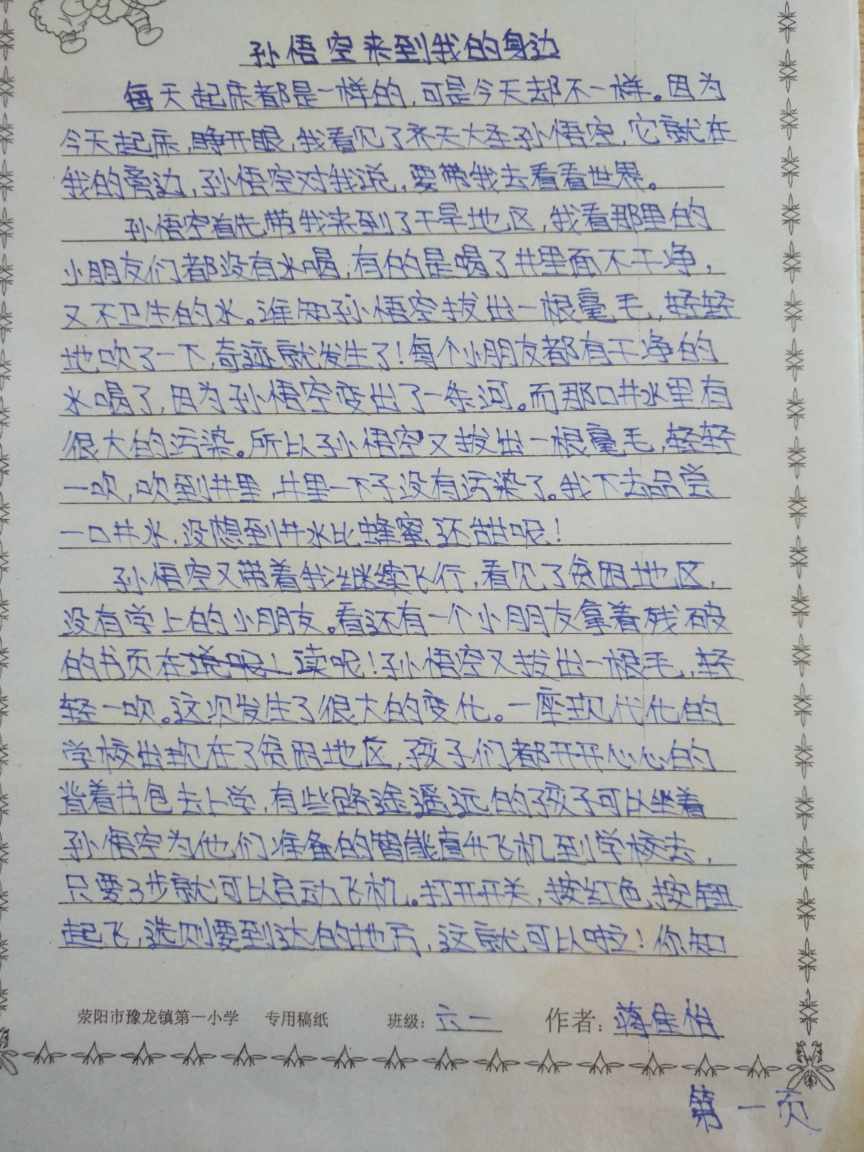 孙悟空来到我的身边
每天起床都是一样的,可是今天却不一样。因为
今天起床,睁开眼,我看见了齐天大圣孙悟空,它就在
我的旁边,孙悟空对我说,要带我去看看世界。
孙悟空首先带我来到了干旱地区,我看那里的
小朋友们都没有水喝,有的是喝了井里面不干净,
又不卫生的水。谁知孙悟空拔出一根毫毛,轻轻
地吹了一下,奇迹就发生了!每个小朋友都有干净的
水喝了,因为孙悟空变出了一条河。而那口井水里有
很大的污染。所以孙悟空又拔出一根毫毛,轻轻
一吹,吹到井里,井里一下子没有污染了。我下去品尝
一口井水,没想到井水比蜂蜜还甜呢!
孙悟空又带着我继续飞行,看见了贫困地区,
没有学上的小朋友。看还有一个小朋友拿着残破
的书页在说呢!读呢!孙悟空又拔出一根毛,轻
轻一吹。这次发生了很大的变化。一座现代化的
学校出现在了贫困地区,孩子们都开开心心的
背着书包去上学,有些路途遥远的孩子可以坐着
孙悟空为他们准备的智能直升飞机到学校去,
只要3步就可以启动飞机。打开开关,按红色按钮
起飞,选则要到达的地方,这就可以啦!你知
荥阳市豫龙镇第一小学 专用稿纸 班级:六一 作者:蒋佳怡
第一页